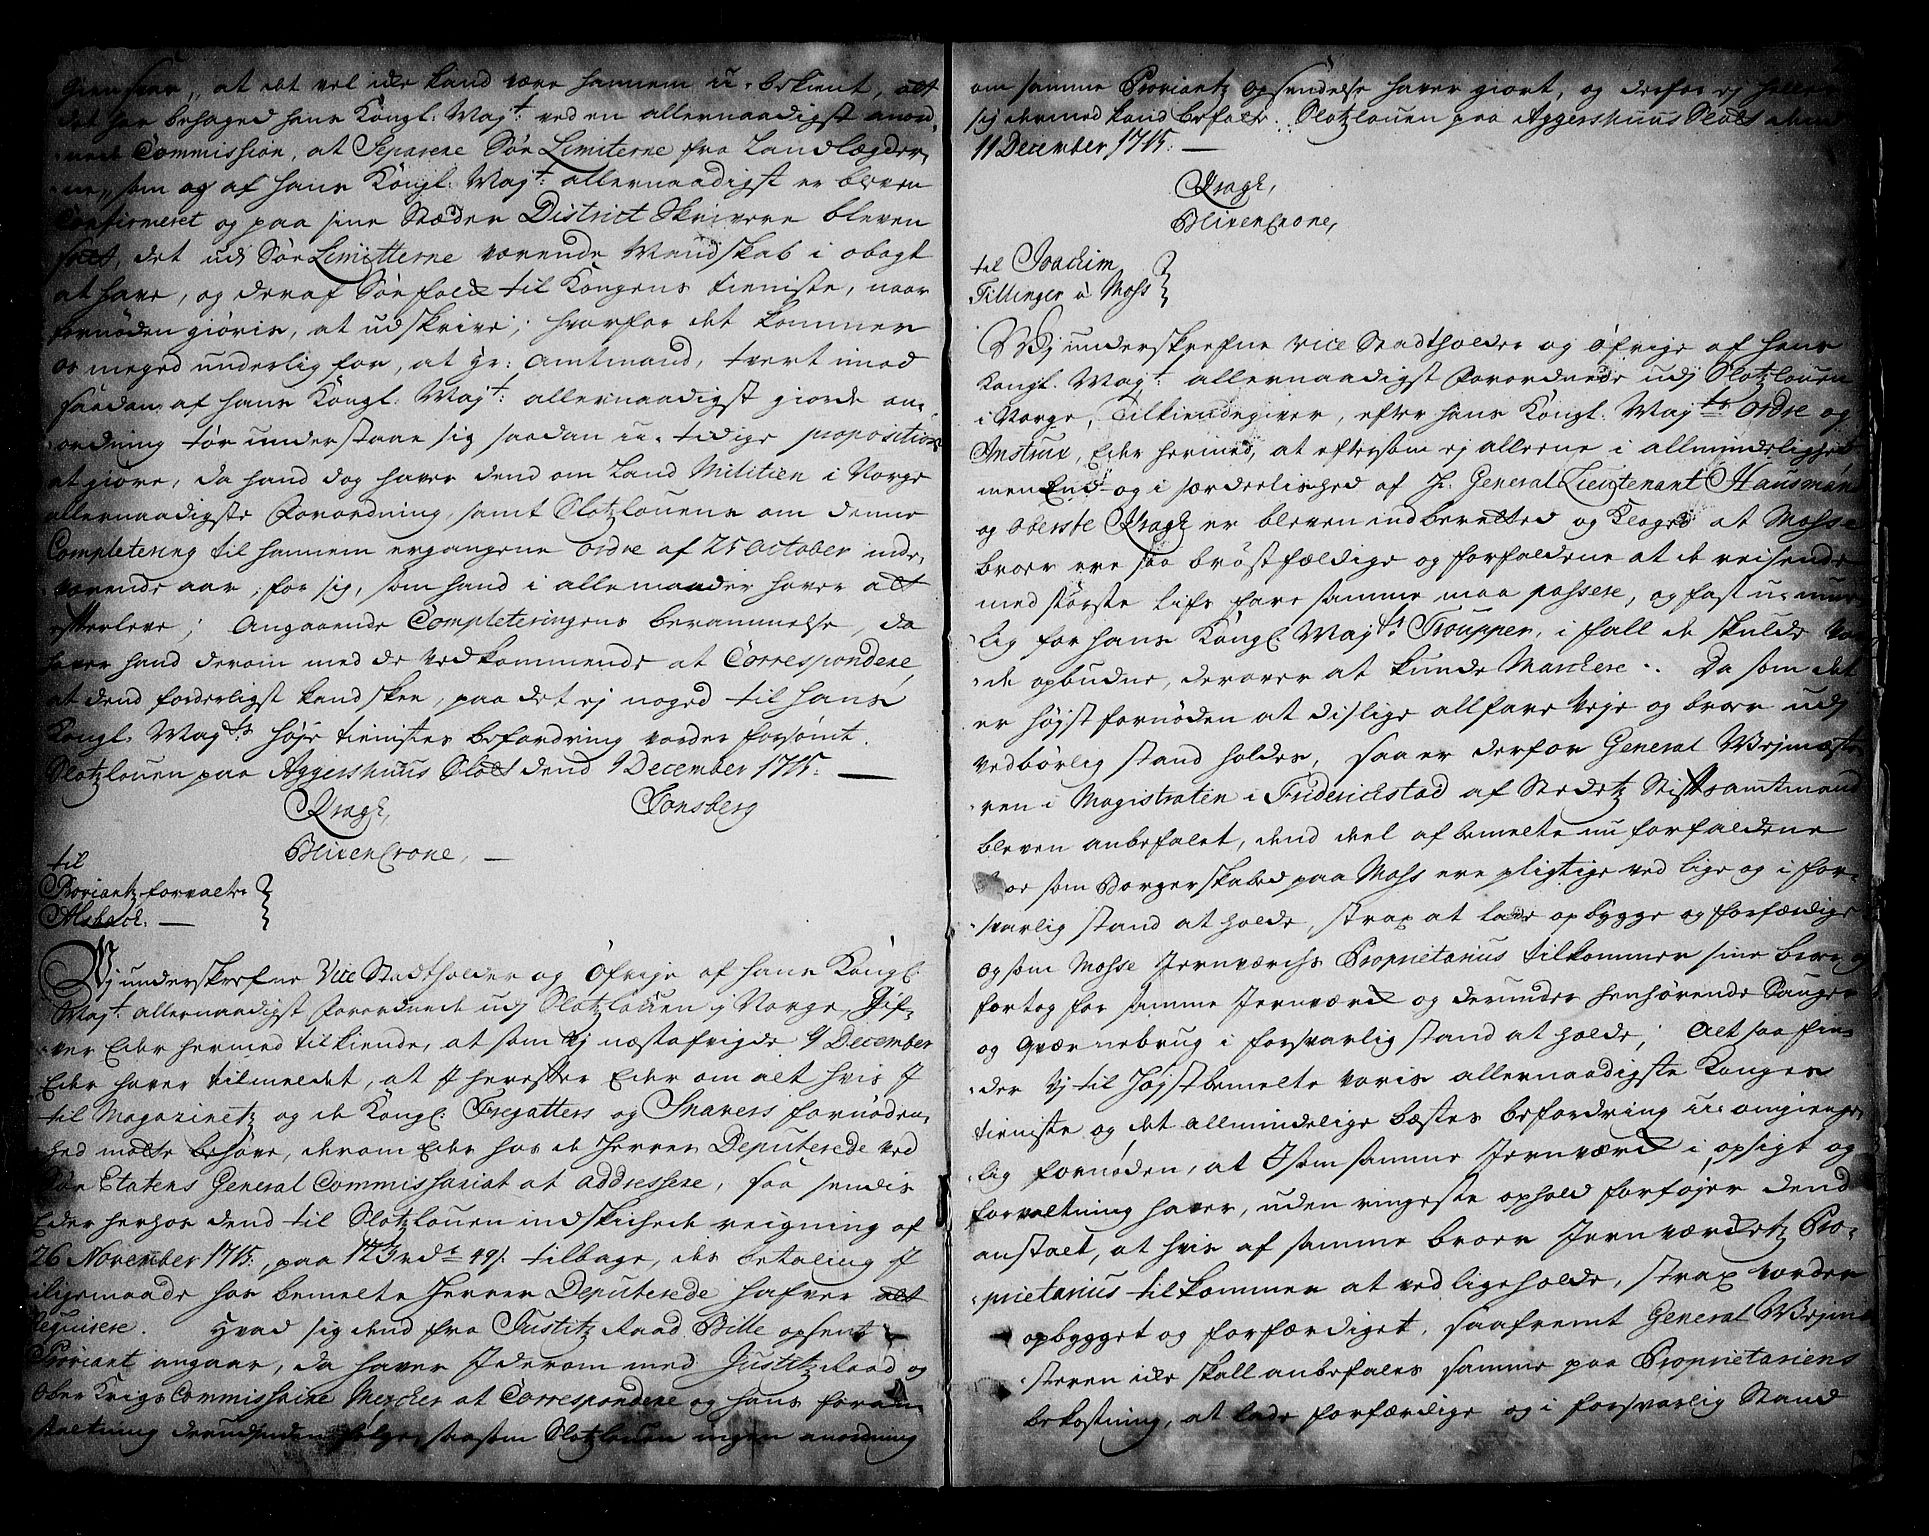 Giensvar, at det vel icke kand være hannem u-bekient, at
det har behaged hans Kongl: Majt: ved en allernaadigst anord-
nede Commission, at Separere Søe Limiterne fra Landlægder-
ne, som og af hans Kongl: Majt: allernaadigst er bleven
Confirmeret og paa sine Stæder District Skrivere bleven
satt, det udj Søe Limitterne værende Mandskab i obagt
at have, og deraf Søefolck til Kongens tieniste, naar
fornøden giøris, at udskrive; hvorfor det kommer
os meged underlig for, at Hr: Amtmand, tvert imod
saadan af hans Kongl: Majt: allernaadigst giorde an-
ordning tør understaae sig saadan u-tidige proposition
at giøre, da hand dog haver dend om Land Militien i Norge
allernaadigste Forordning, samt Slotzlouens om denne
Completering til hannem ergangene ordre af 25 October inde-
værende aar, for sig, som hand i allemaader haver at
efterleve; Angaaende Completeringens berammelse, da
haver hand derom med de vedkommende at Correspondere,
at dend forderligst kand skee, paa det ej noged til hans
Kongl. Majts: høje tienistes befordring vorder forsømt.
Slotzlouen paa Aggershuus Slott dend 9 December 1715.
Kragh, Tonsberg
BlixenCrone,
til
Proviantz forvalter
Alsbach.
Wj underskrefne Vice Stadtholder og Øfrige af hans Kongl:
Majt: allernaadigst Forordnede udj Slotzlouen j Norge, Gif-
ver Eder hermed tilkiende, at som Vj næstafvigde 9 December
Eder haver tilmeldet, at J herefter Eder om alt hvis J
til Magazinetz og de Kongl: Fregatters og Snavers fornøden-
hed motte behøve, derom Eder hos de Herrer Deputerede ved
Søe Etatens General Commissariat at addressere, saa sendis
Eder herhos dend til Slotzlouen indskichede reigning af
26 November 1715, paa 123 rdr 49/. tilbage, des betaling J
iligemaade hos bemelte Herrer Deputerede hafver at
requirere. Hvad sig dend fra Justitz Raad Bille opsent
Proviant angaar, da haver J derom med Justitz Raad og
Ober Krigs Commissaire Mercker at Correspondere og hans foran-
staltning derudjinden følge, saasom Slotzlouen ingen anordning
om samme Proviantz opsendelse haver giort, og derfor ej heller
sig dermed kand befatte. Slotzlouen paa Aggershuus Slott dend
11 December 1715.
Kragh,
BlixenCrone,
til Joachim
Tillinger à Moss
Wj underskrefne vice Stadtholder og Øfrige af hans
Kongl. Majt: allernaadigst Forordnede udj Slotzlouen
i Norge, Tilkiendegiver, efter hans Kongl. Majts ordre og
Instrux, Eder hermed, at eftersom ej allene i allmindelighed
men End og i særdelished af Hr. General Lieutenant Hausman
og oberste Kragh er bleven indberetted og klaged at Mosse
broer ere saa brøstfældige og forfaldene at de reisende
med største lifs fare samme maa passere, og fast u-mue-
lig for hans Kongl. Majts Troupper, i fall de skulde vor-
de opbudne, derover at kunde Marchere. Da som det
er højst fornøden at dislige allfare veje og broer udj
vedbørlig stand holdes, saa er derfor General Vejmæste-
ren i Magistraten i Friderichstad af Stedetz Stiftsamtmand
bleven anbefalet, dend deel af bemelte nu forfaldene
broe som Borgerskabed paa Moss ere pligtige ved lige og i for-
svarlig stand at holde, strax at lade opbygge og forfærdige
og som Mosse Jernværchs Proprietarius tilkommer sine broer og
fortog for samme Jernværck og derunder henhørende Sauger
og Qværnebrug i forsvarlig stand at holde; Altsaa fin-
der Vj til Højstbemelte voris allernaadigste Konges
tieniste og det allmindelige bæstes befordring u-omgienge-
lig fornøden, at J som samme Jernværck i opsigt og
forvaltning haver, uden ringeste ophold forføjer dend
anstalt, at hvis af samme broer Jernværcketz Pro-
prietarius tilkommer at ved lige holde, strax vorder
opbygget og forfærdiget, saafremt General Vejme-
steren icke skall anbefales samme paa Proprietariens
bekostning, at lade forfærdige og i forsvarlig Stand